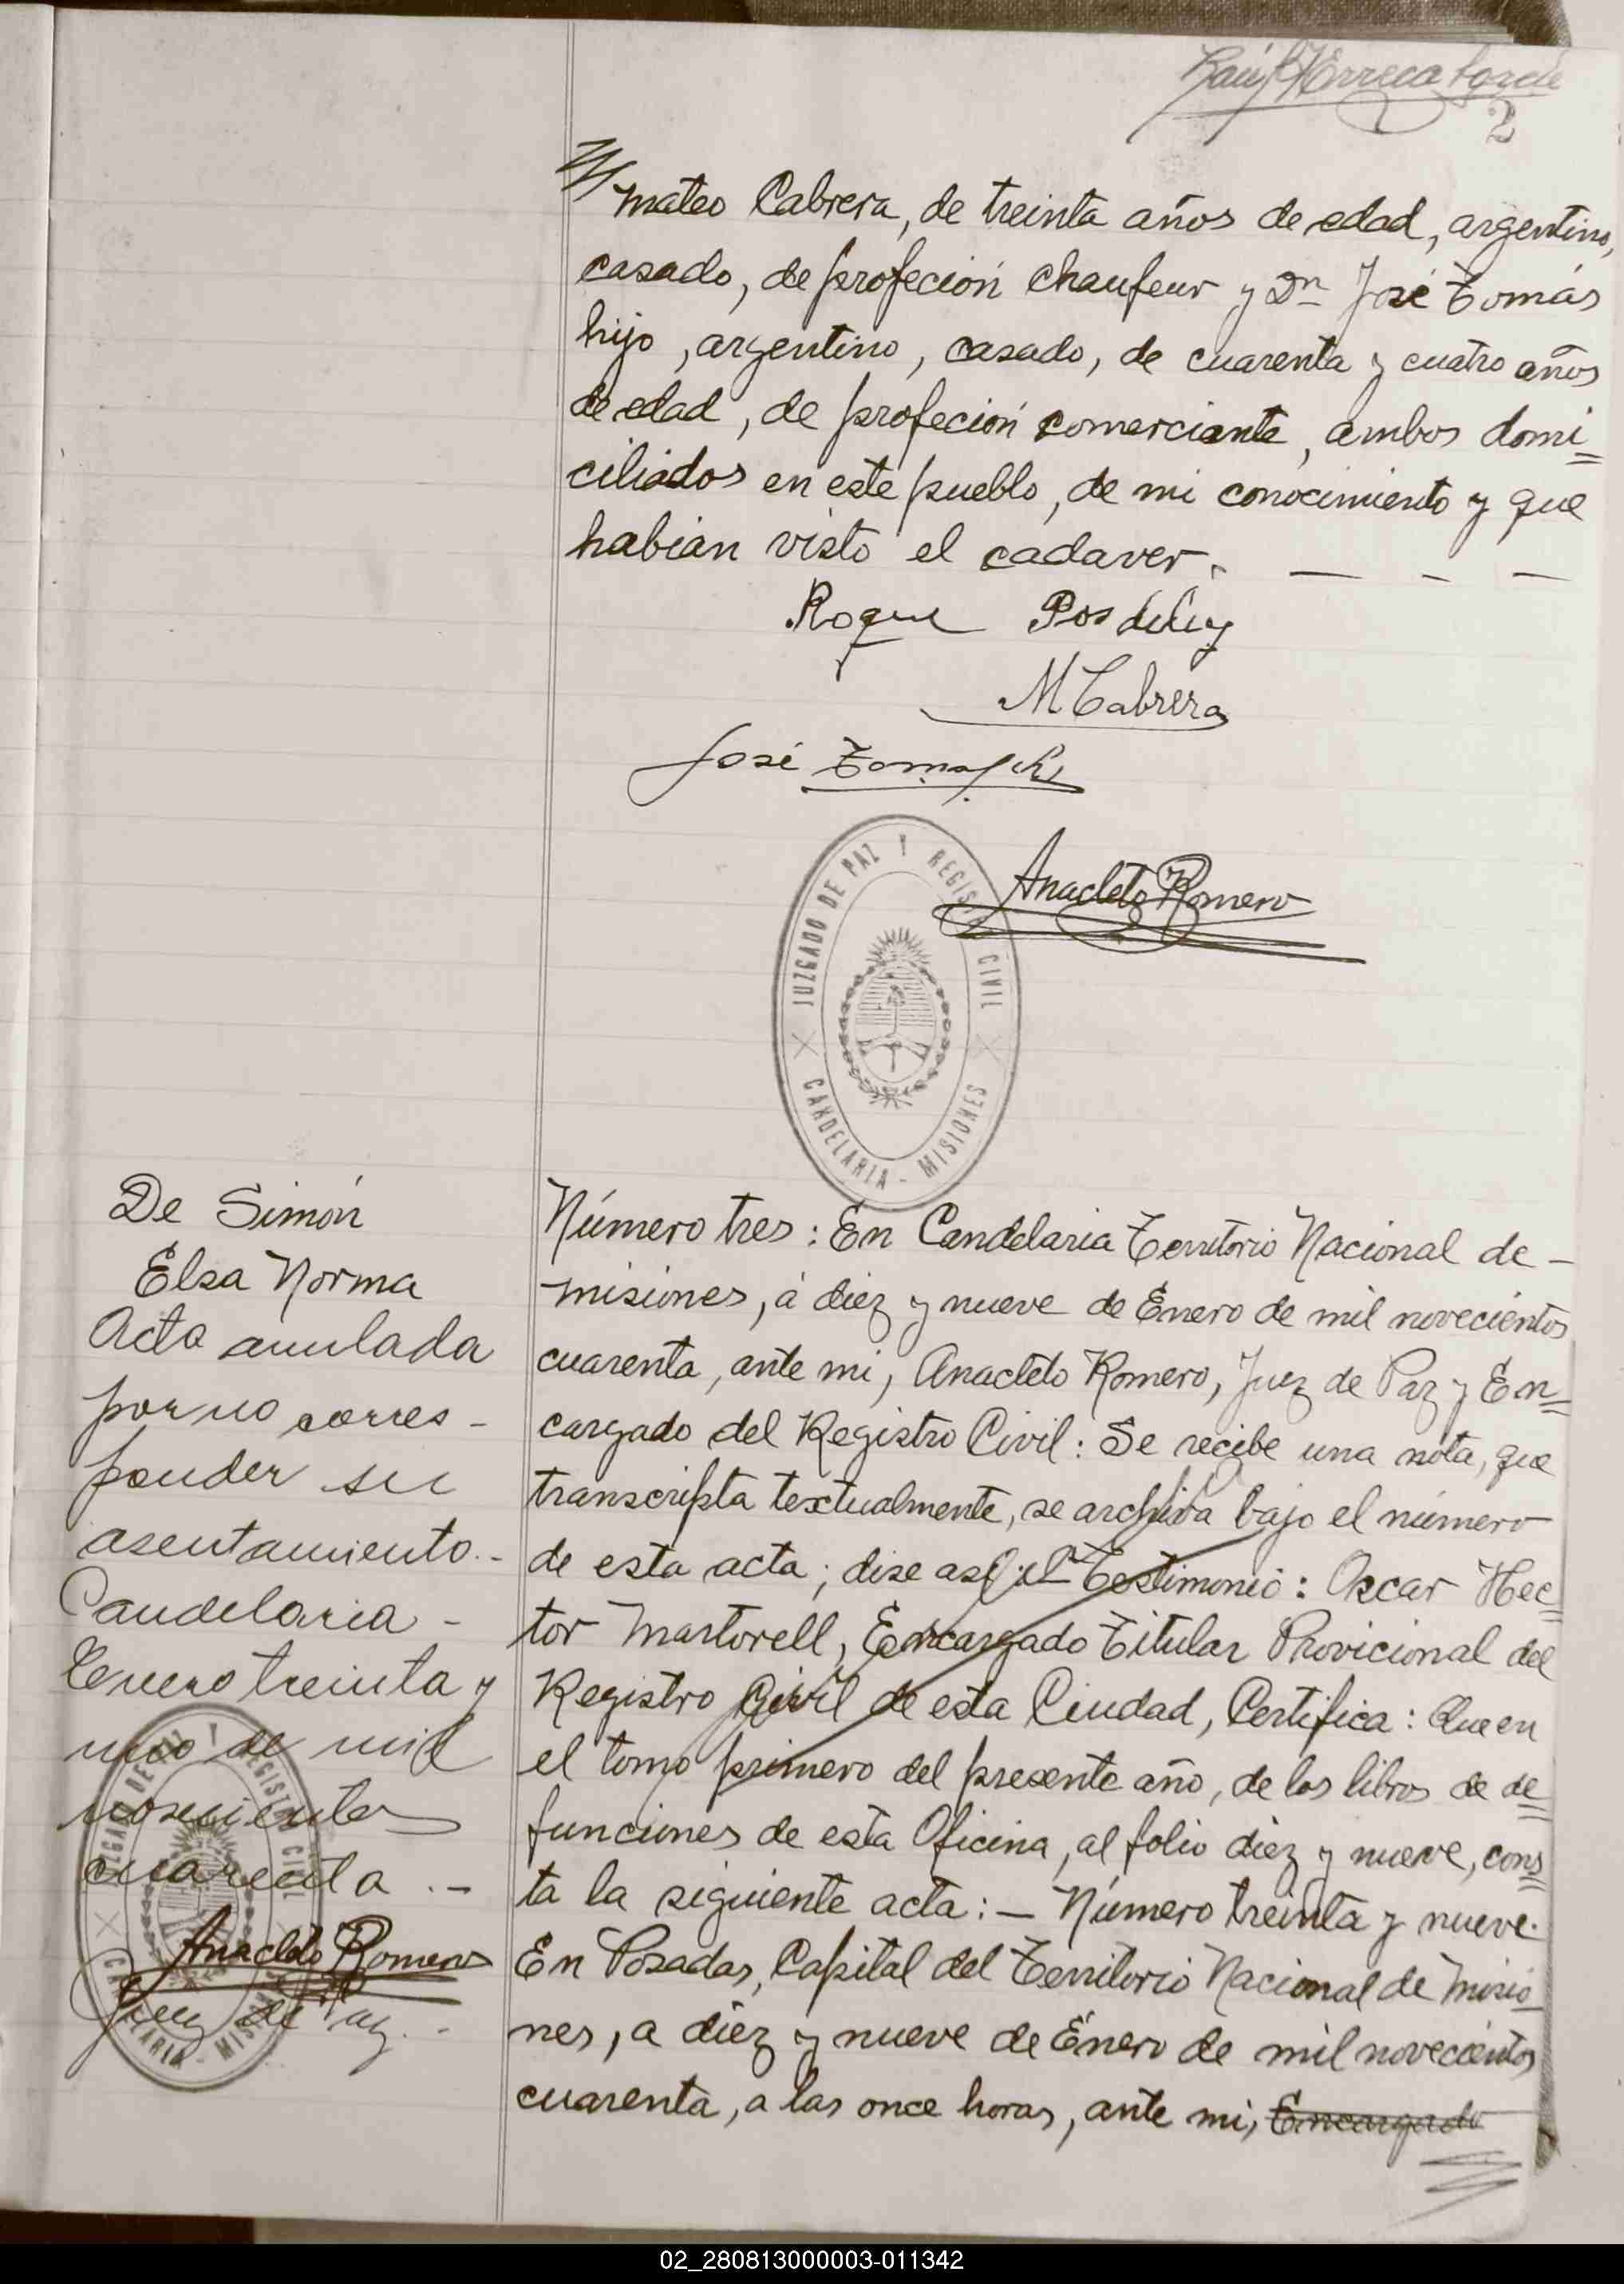 2
Mateo Cabrera, de treinta años de edad, argentino,
casado, de profeción chaufeur y Dn José Tomás
hijo, argentino, casado, de cuarenta y cuatro años
de edad, de profeción comerciante, ambos domi=
ciliados en este pueblo, de mi conocimiento y que
habían visto el cadaver. — - —
Roque
M Cabrera
José
Anacleto Romero
JUZGADO DE PAZ Y REGISTRO CIVIL
CANDELARIA - MISIONES
De Simón
Elsa Norma
Acta anulada
por no corres -
ponder su
asentamiento.-
Candelaria -
Enero treinta y
uno de mil
cuarenta.-
Anacleto Romero
Juez de Paz.-
JUZGADO DE PAZ Y REGISTRO CIVIL
CANDELARIA - MISIONES
Número tres: En Candelaria Territorio Nacional de -
Misiones, á diez y nueve de Enero de mil novecientos
cuarenta, ante mi, Anacleto Romero, Juez de Paz y En=
cargado del Registro Civil: Se recibe una nota, que
transcripta textualmente, se archiva bajo el número
de esta acta; dise así: Testimonio: Oscar Hec=
tor Martorell, Encargado Titular Provicional del
Registro Civil de esta Ciudad, Certifica: Que en
el tomo primero del presente año, de los libros de de=
funciones de esta Oficina, al folio diez y nueve, cons=
ta la siguiente acta: — Número treinta y nueve.
En Posadas, Capital del Territorio Nacional de Misio-
nes, a diez y nueve de Enero de mil novecientos
cuarenta, a las once horas, ante mi, Encargado
02_280813000003-011342